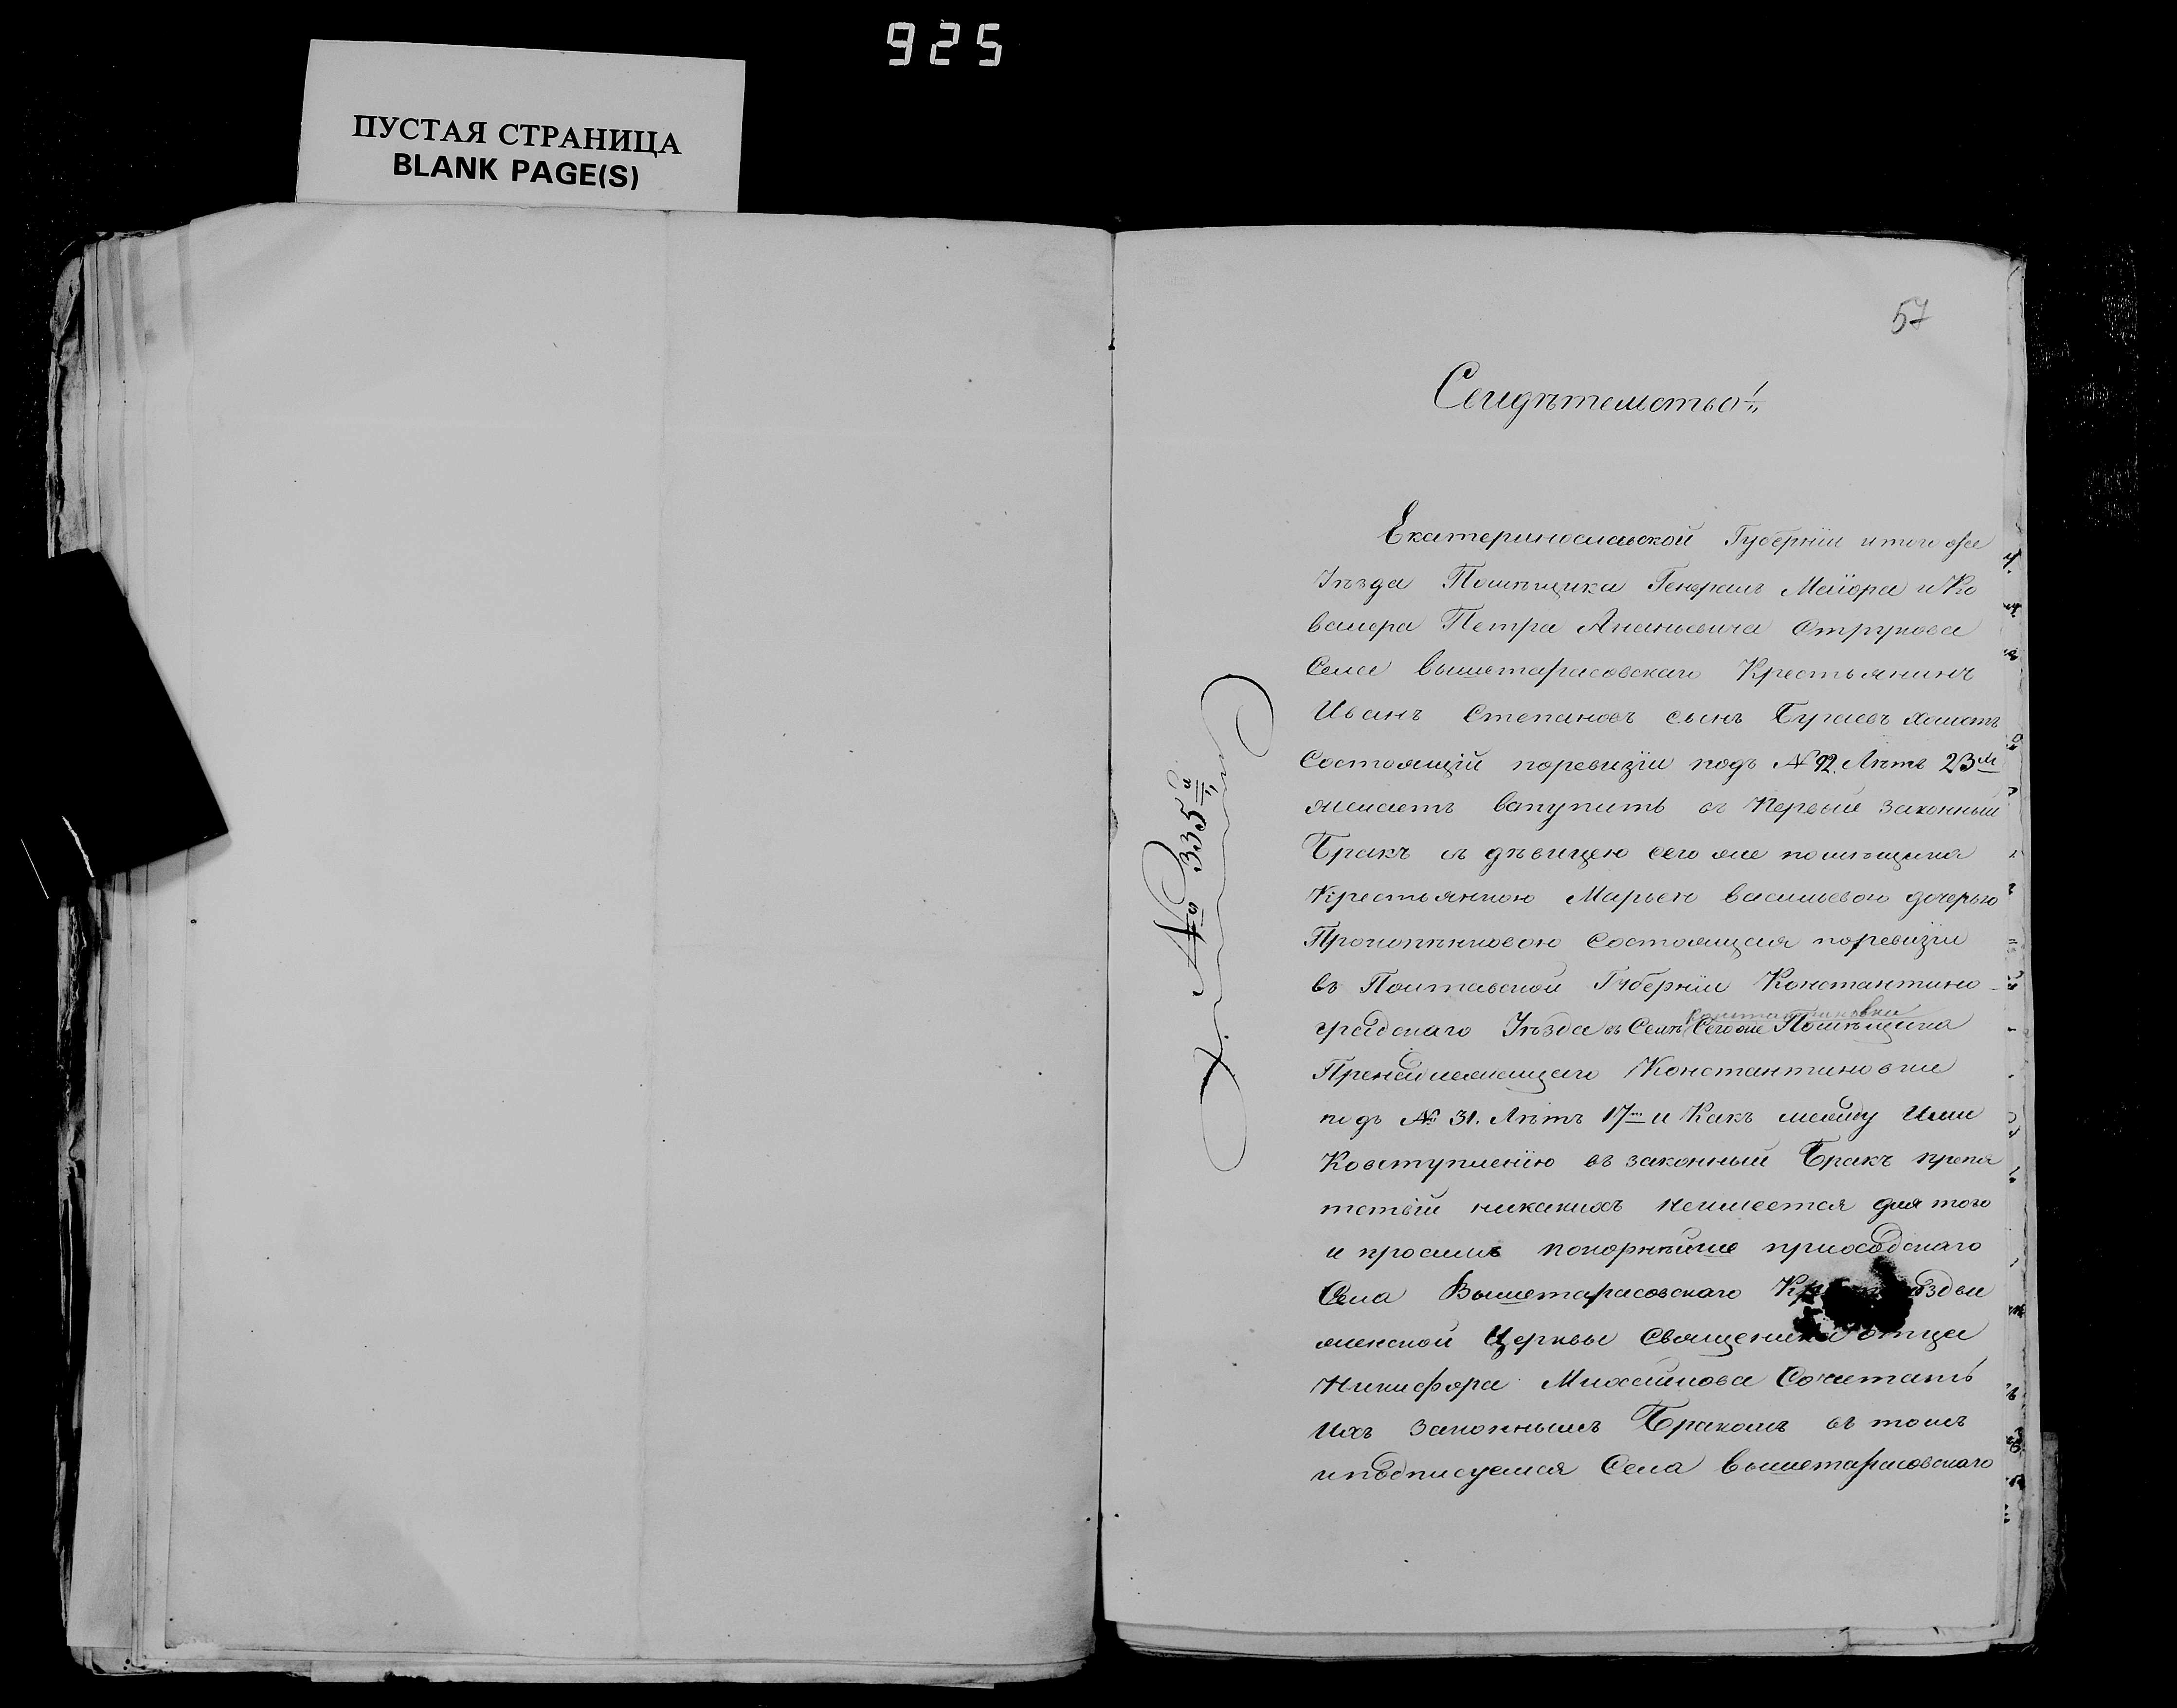 925
ПУСТАЯ СТРАНИЦА
BLANK PAGE(S)
57
Свидѣтельство
№ 335й
Екатеринославской Губерніи и того же
Уѣзда Помѣщика Генералъ Маіора и Ка
валера Петра Ананьевича Струкова
Села вышетарасовскаго Крестьянинъ
Иванъ Степановъ сынъ
Состоящій поревизіи подъ № 92. Лѣтъ 23й
желаетъ вступить въ Первый законный
Бракъ съ дѣвицею сего же помѣщика
Крестьянкою Марьею васильевою дочерью
Состоящая поревизіи
въ Полтавской Губерніи Константино
градскаго Уѣзда въ Селѣ Сего же Помѣщика
Константиновки
Константиновки
подъ № 31. Лѣтъ 17 и Какъ между Ими
Ковступленію въ законный Бракъ препя
тствій никакихъ неимеется для того
и просимъ покорнѣйше приходскаго
Села Вышетарасовскаго здви
женской Церквы Священика отца
Никифора Михайлова Сочетать
Ихъ Законнымъ Бракомъ въ томъ
иподписуемся Села вышетарасовскаго